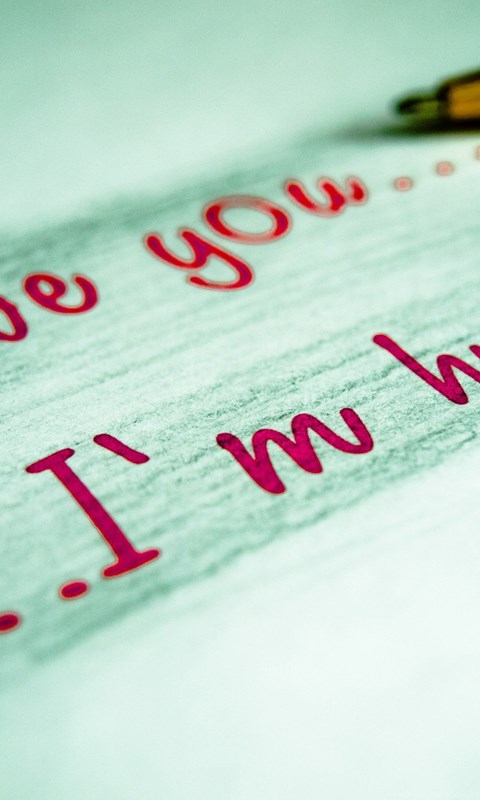 ve you...
..I'm h